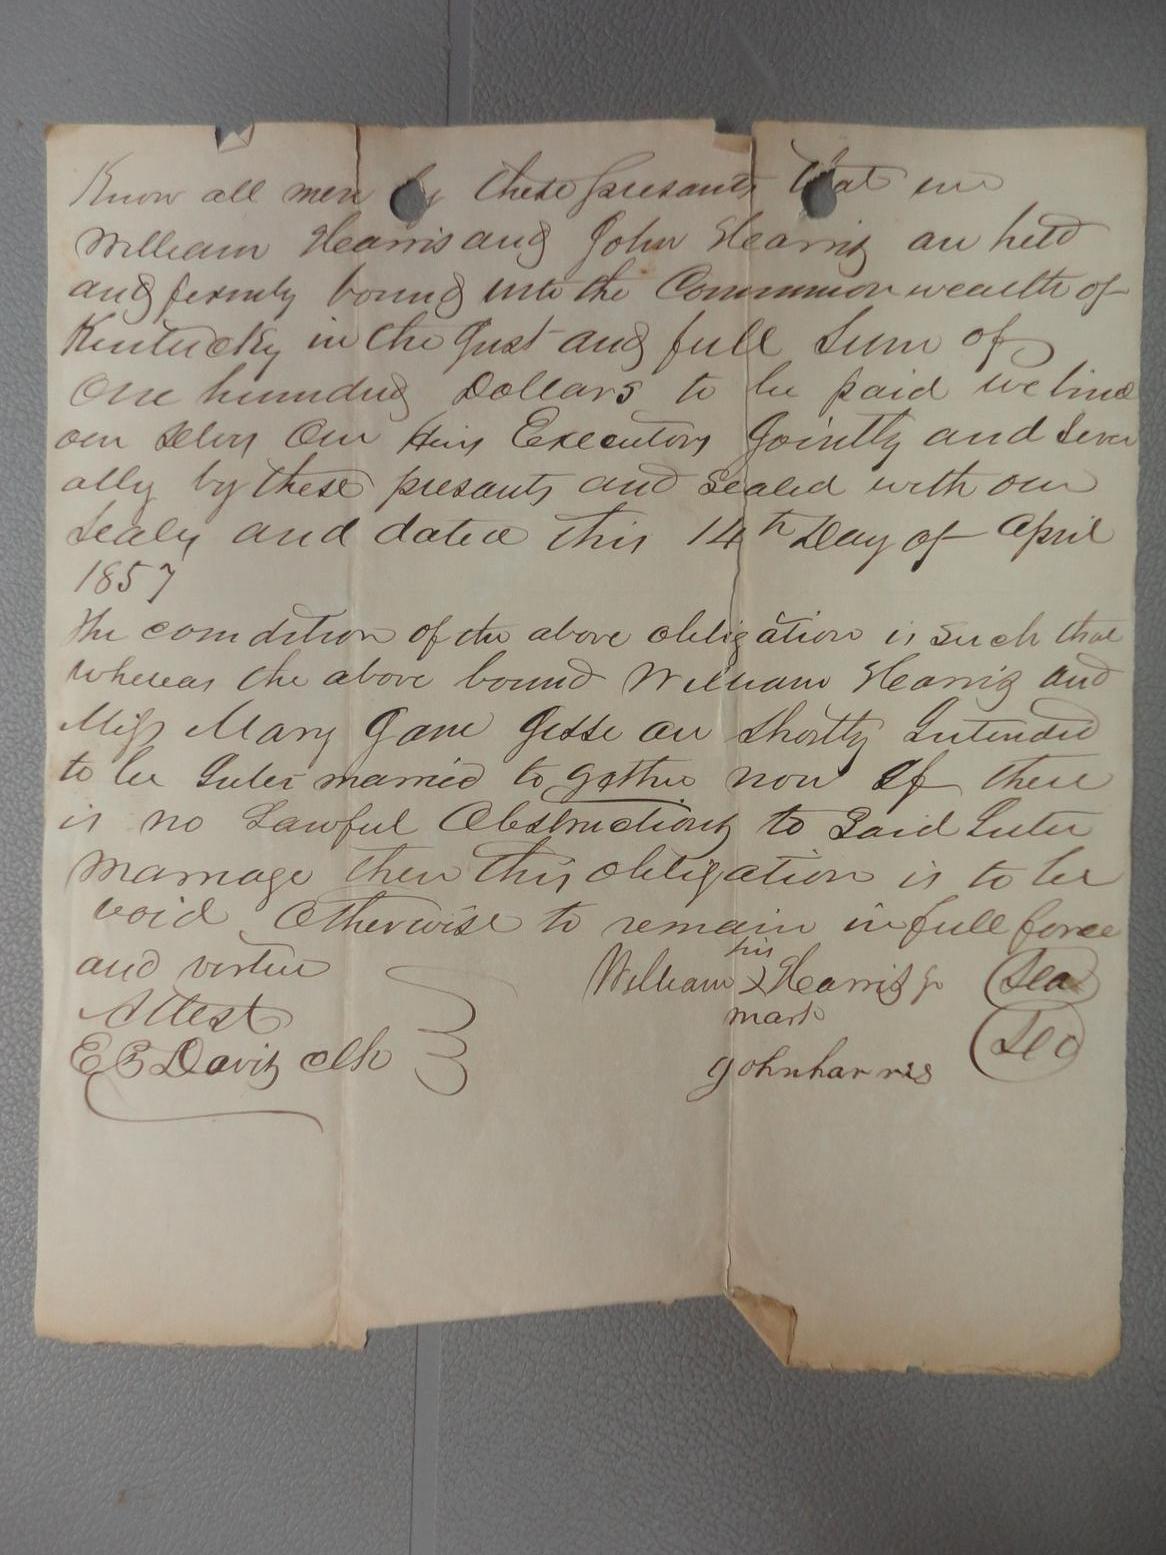 Know all men by these presants that we
William Harris and John Harris are held
and firmly bound unto the Commmonwealth of
Kentucky in the Just and full Sum of
One hundred Dollars to be paid we bind
our selvs our Heirs Executors Jointly and Sever
ally by these presants and sealed with our
Seals and dated this 14th Day of April
1857
The condition of the above obligation is such that
whereas the above bound William Harris and
Miss Mary Jane Jesse are shortly Intended
to be Inter married to gather now If there
is no Lawful Obstructions to Said Inter
marriage then this obligation is to be
void Otherwise to remain in full force
and virtue
his
William X Harris Jr Seal
mark
Attest
E B Davis clk
John harris Seal